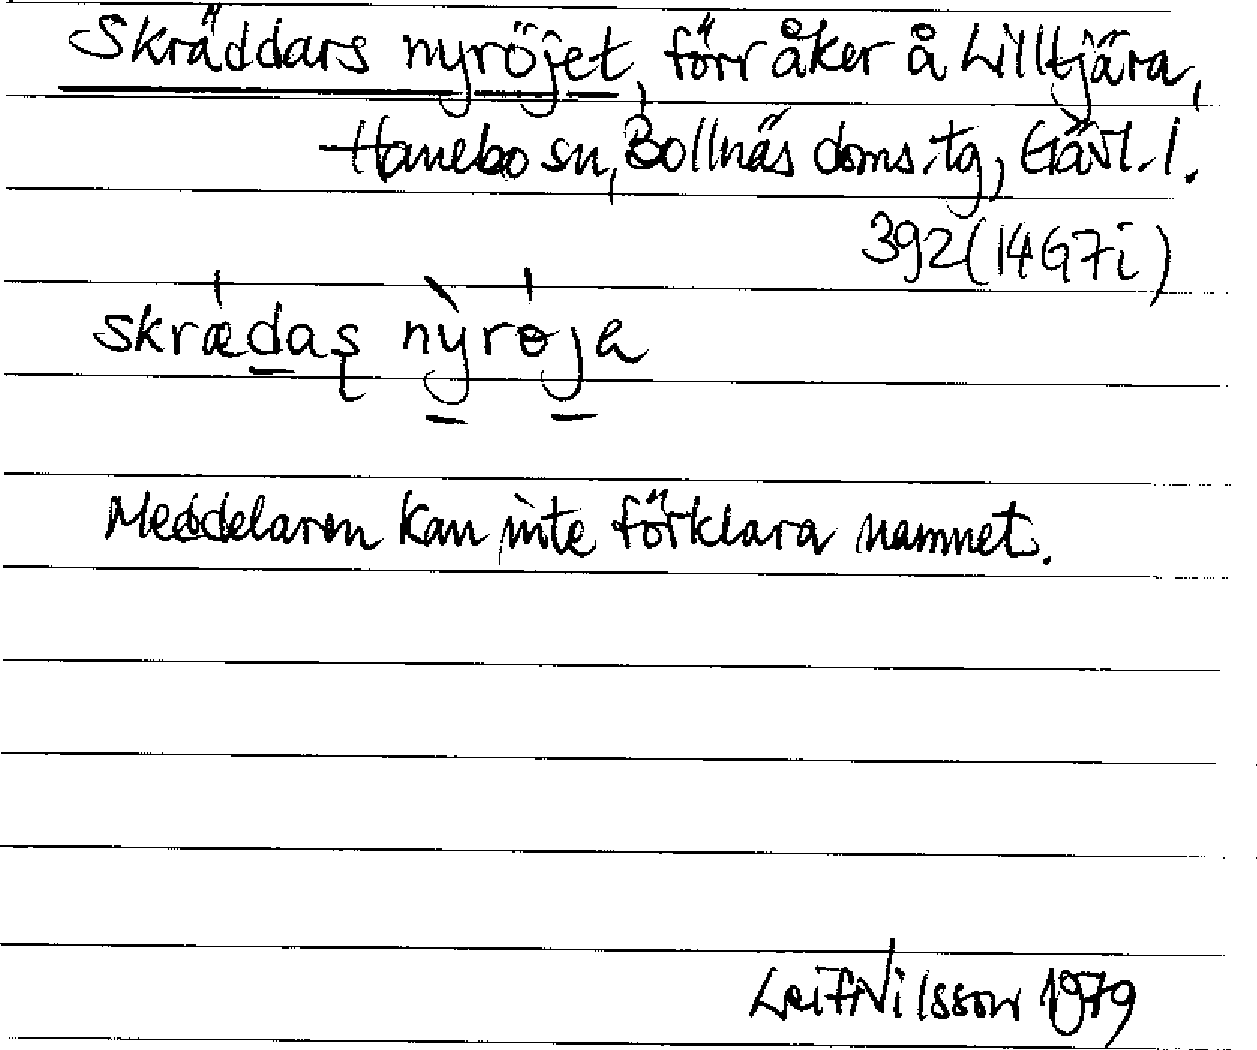 Skräddars nyröjet, förr åker å Lilltjära,
Hanebo sn, Bollnäs doms.tg, Gävl. l.
392 (14G7i)
skrædaş nỳrөja
Meddelaren kan inte förklara namnet.
Leif Nilsson 1979